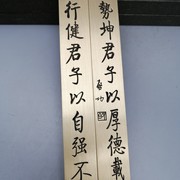 行健君子以自强不
勢坤君子以厚德載
启功